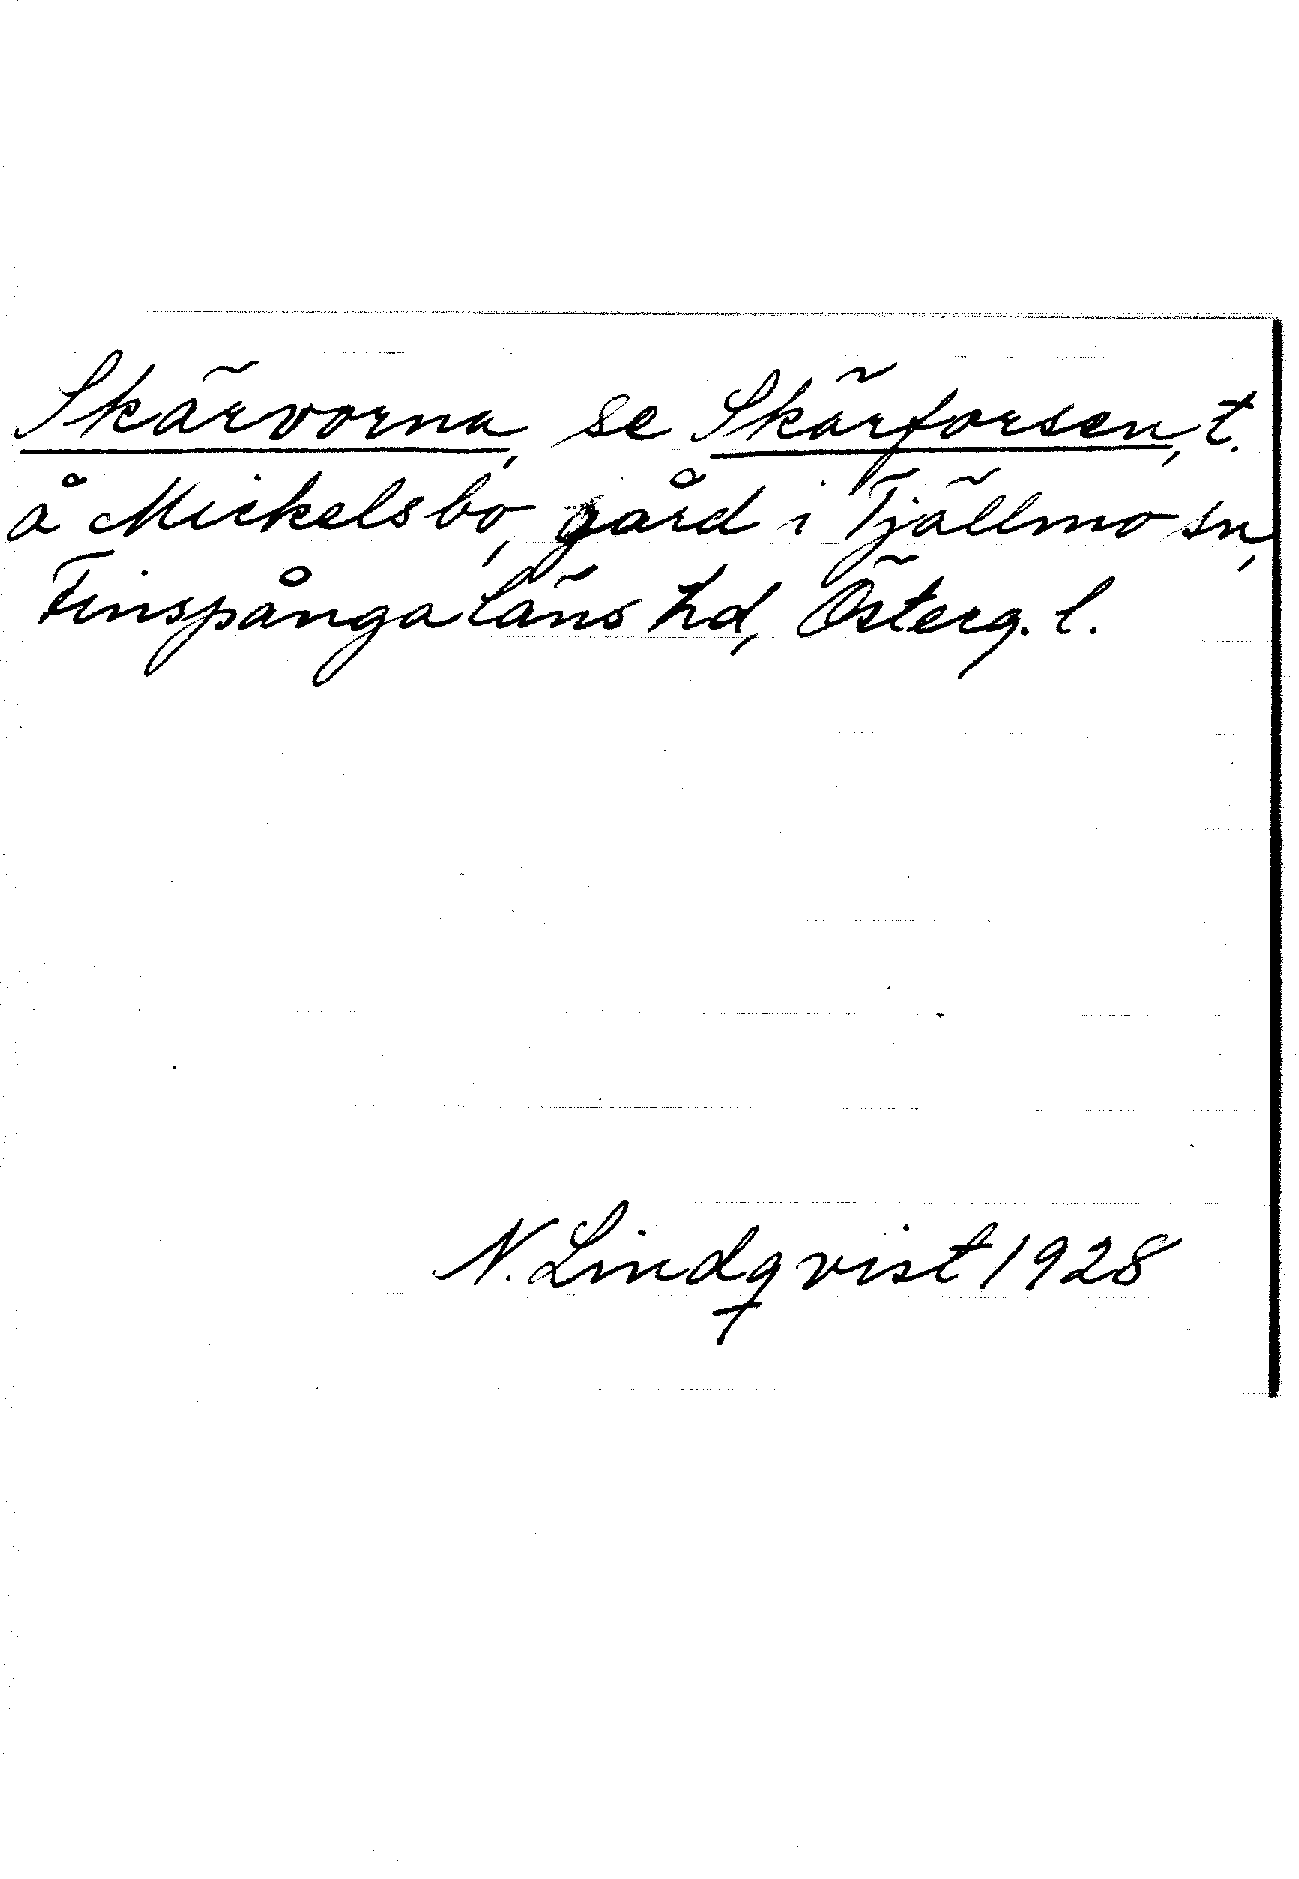 Skärvorna, se Skärforsen, t.
å Mickelsbo, gård i Tjällmo sn,
Finspånga läns hd, Österg. l.
N. Lindqvist 1928